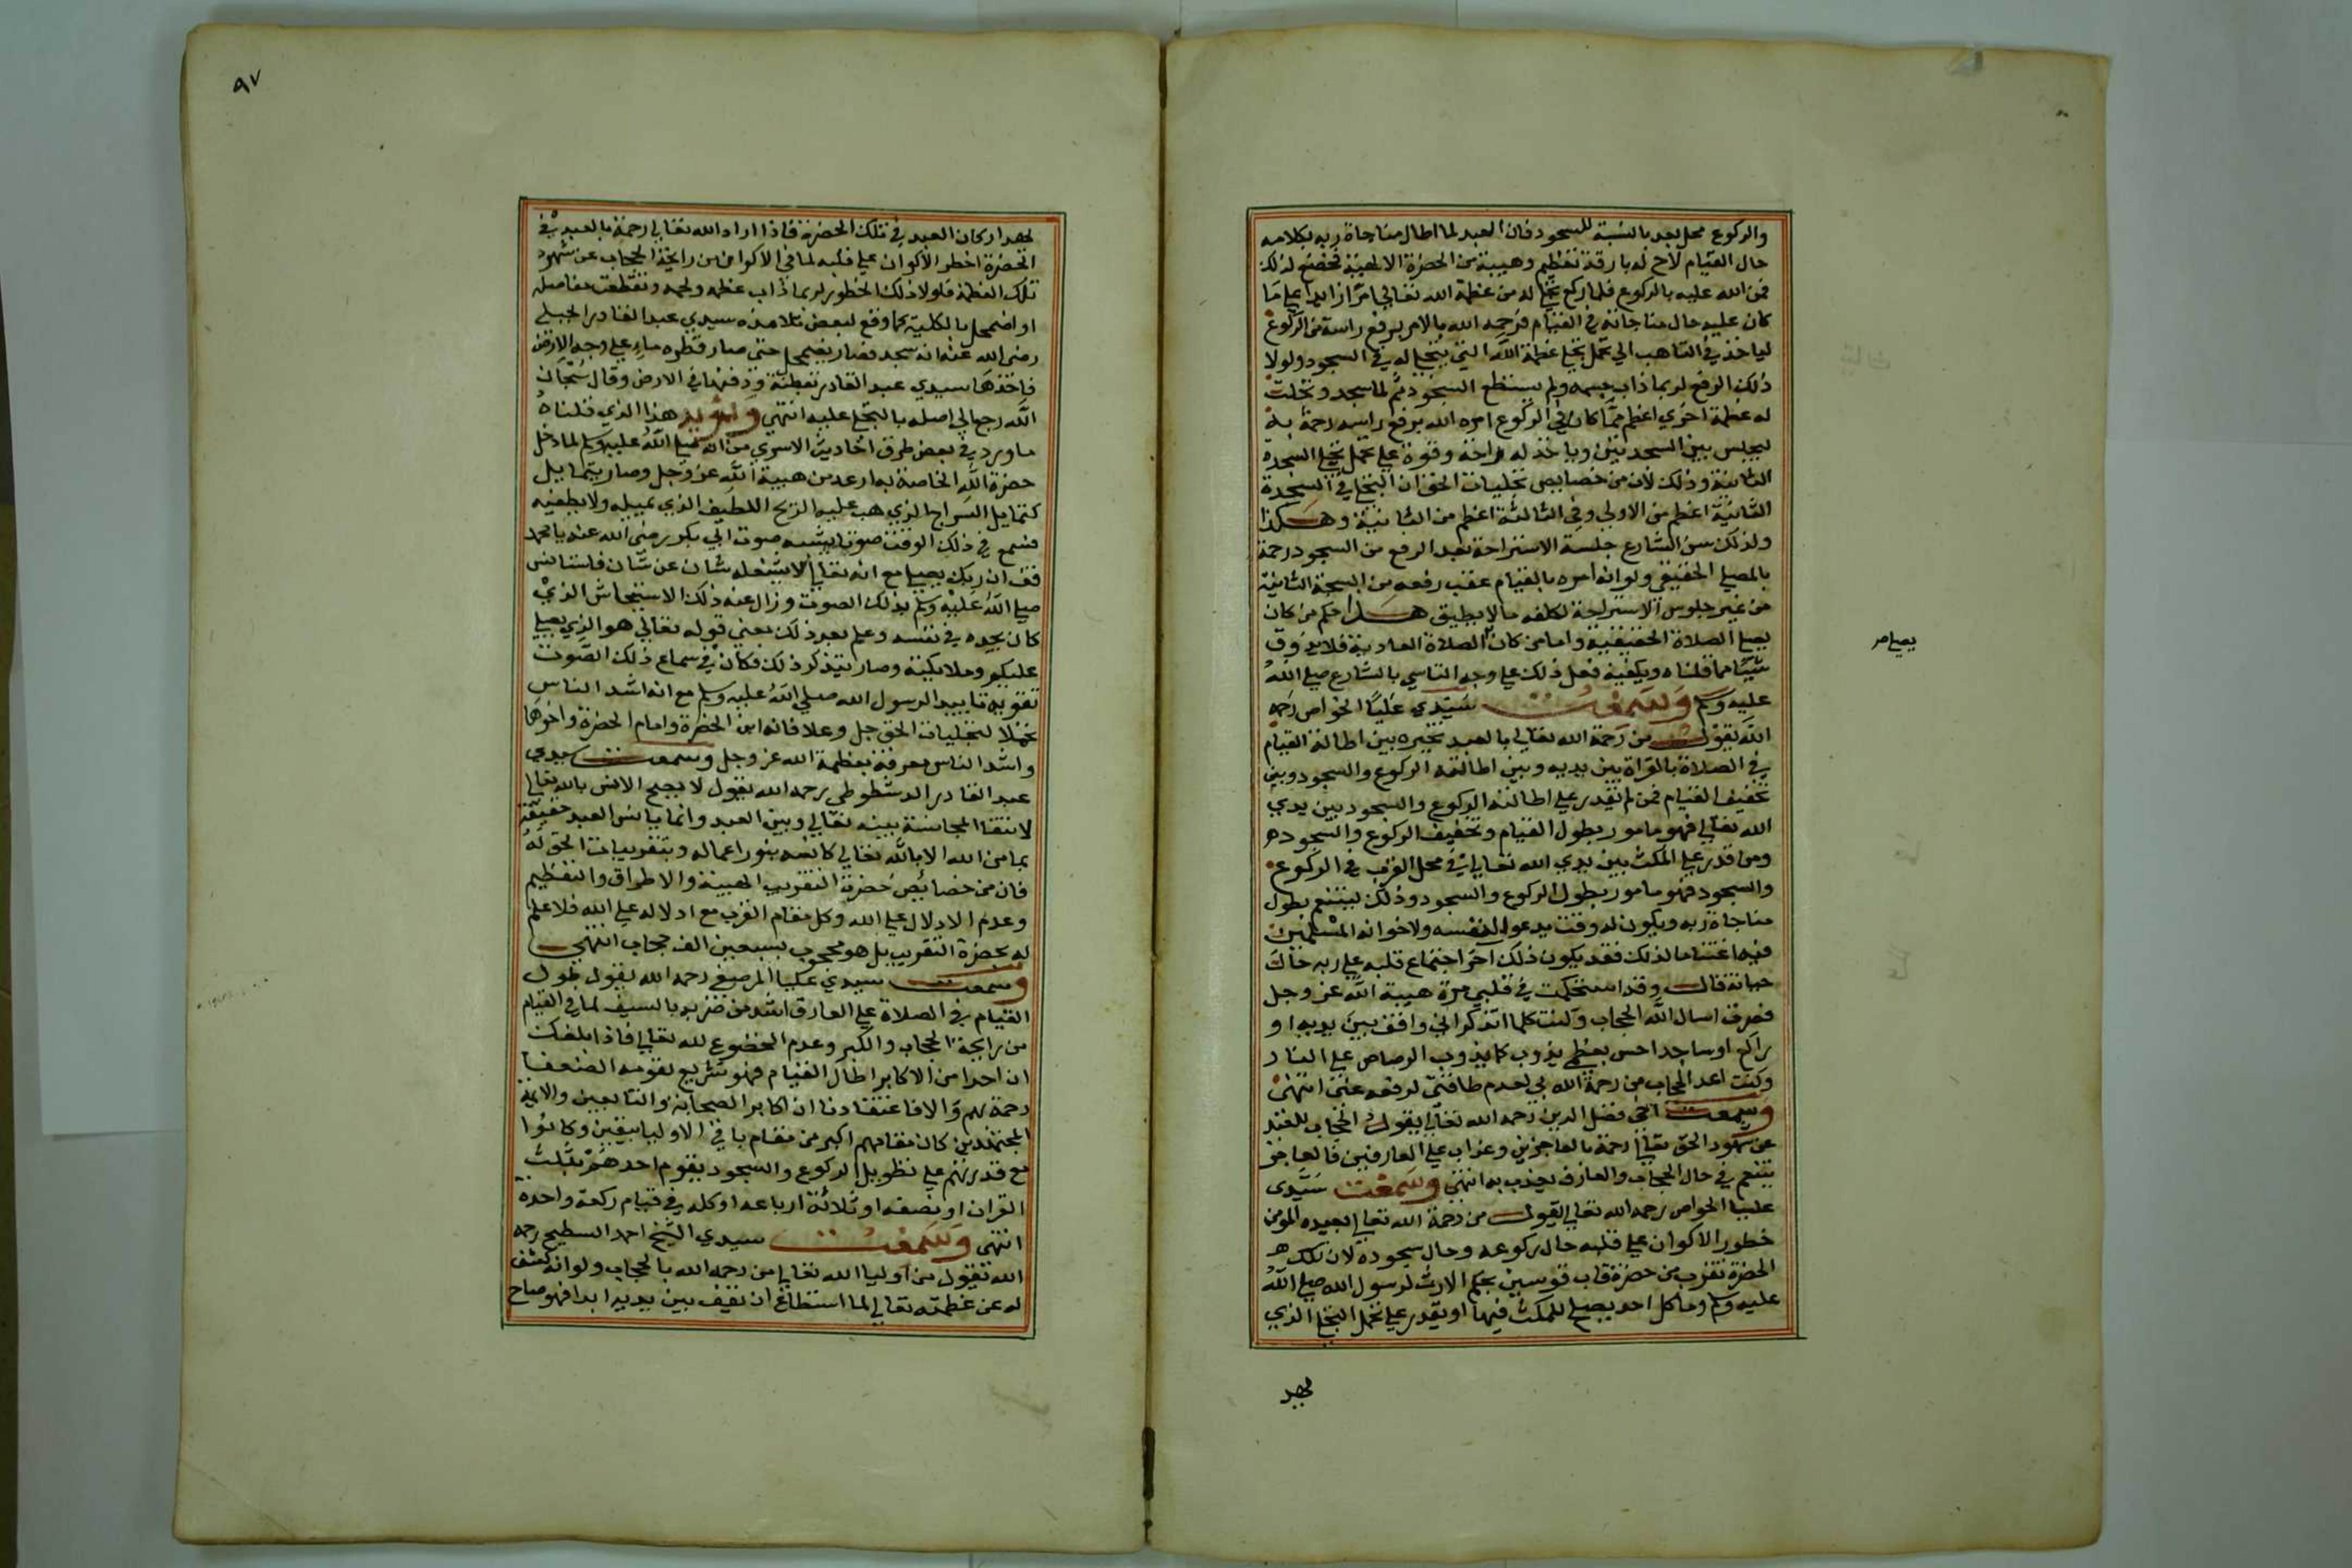 والركوع محل بعد بالنسبة للسجود فان العبد لما اطال مناجاة ربه بكلامه
حال القيام لاح له بارقة تعظيم وهيبة من الحضرة الالهية فخضع لذلك
فمن الله عليه بالركوع فلما ركع تجلى له من عظمة الله تعالي امرا زايدا علي ما
كان عليه حال مناجاته في القيام فرحمه الله بالامر برفع راسه من الركوع
لياخذ في التاهب الي تحمل تجلي عظمة الله التي تتجلي له في السجود ولولا
ذلك الرفع لربما ذاب جسمه ولم يستطع السجود ثم لما سجد وتجلت
له عظمة اخري اعظم مما كان في الركوع امره الله برفع راسه رحمة به
ليجلس بين السجدتين وياخذ له راحة وقوة علي تحمل تجلي السجدة
الثانية وذلك لان من خصايص تجليات الحق ان التجلي في السجدة
الثانية اعظم من الاولي وفي الثالثة اعظم من الثانية وهكذا
ولذلك سن الشارع جلسة الاستراحة بعد الرفع من السجود رحمة
بالمصلي الحقيقي ولو انه امره بالقيام عقب رفعه من السجدة الثانية
من غير جلوس الاستراحة لكلفه ما لا يطيق هذا حكم من كان
يصلي الصلاة الحقيقية واما من كان الصلاة العادية فلا يذوق
شيئا مما قلناه ويكفيه فعل ذلك علي وجه التاسي بالشارع صلي الله
عليه وسلم وسمعت سيدي عليا الخواص رحمه
الله يقول من رحمة الله تعالي بالعبد تخييره بين اطالة القيام
في الصلاة بالقراة بين يديه وبين اطالته الركوع والسجود وبين
تخفيف القيام فمن لم يقدر علي اطالته الركوع والسجود بين يدي
الله تعالي فهو مامور بطول القيام وتخفيف الركوع والسجود
ومن قدر علي المكث بين يدي الله تعالي في محل القرب في الركوع
والسجود فهو مامور بطول الركوع والسجود وذلك ليتنعم بطول
مناجاة ربه ويكون له وقت يدعوا لنفسه ولاخوانه المسلمين
فيه اغتناما لذلك فقد يكون ذلك اخر اجتماع قلبه علي ربه حال
حياته قال وقد استحكمت في قلبي مرة هيبة الله عز وجل
فصرت اسال الله الحجاب وكنت كلما اتذكر اني واقف بين يديه او
راكع او ساجد احس بعظمي يذوب كما يذوب الرصاص علي النار
وكنت اعد الحجاب من رحمة الله بي لعدم طاقتي لرفعه عني انتهي
وسمعت اخي فضل الدين رحمه الله تعالي يقول الحجاب للعبد
عن شهود الحق تعالي رحمة بالعاجزين وعذاب علي العارفين فالعاجز
يتنعم في حال الحجاب والعارف يعذب به انتهي وسمعت سيدي
عليا الخواص رحمه الله تعالي يقول من رحمة الله تعالي بعبده المومن
خطور الاكوان علي قلبه حال ركوعه وحال سجوده لان تلك
الحضرة تقرب من حضرة قاب قوسين بحكم الارث لرسول الله صلي الله
عليه وسلم وما كل احد يصلح للمكث فيها او يقدر علي تحمل التجلي الذي
يهد
يصلي صح
٩٧
يهد اركان العبد في تلك الحضرة فاذا اراد الله تعالي رحمة بالعبد في
الحضرة اخطر الاكوان علي قلبه لما في الاكوان من رايحة الحجاب عن شهود
تلك العظمة فلولا ذلك الخطور لربما ذاب عظمه ولحمه وتقطعت مفاصله
او اضمحل بالكلية كما وقع لبعض تلامذه سيدي عبد القادر الجيلي
رضي الله عنه انه سجد فصار يضمحل حتي صار قطره ماء علي وجه الارض
فاخذها سيدي عبد القادر بقطنة ودفنها في الارض وقال سبحان
الله رجع الي اصله بالتجلي عليه انتهي ويؤيد هذا الذي قلناه
ما ورد في بعض طرق احاديث الاسري من انه صلي الله عليه وسلم لما دخل
حضرة الله الخاصة به ارعد من هيبة الله عز وجل وصار يتمايل
كتمايل السراج الذي هب عليه الريح اللطيف الذي يميله ولا يطفيه
فسمع في ذلك الوقت صوتا يشبه صوت ابي بكر رضي الله عنه يا محمد
قف ان ربك يصلي مع انه تعالي لا يشغله شان عن شان فاستانس
صلي الله عليه وسلم بذلك الصوت وزال عنه ذلك الاستيحاش الذي
كان يجده في نفسه وعلم بعد ذلك معني قوله تعالي هو الذي يصلي
عليكم وملايكته وصار يتذكر ذلك فكان في سماع ذلك الصوت
تقوية وتاييد الرسول الله صلي الله عليه وسلم مع انه اشد الناس
تحملا لتجليات الحق جل وعلا فانه ابن الحضرة وامام الحضرة واخوها
واشد الناس معرفة بعظمة الله عز وجل وسمعت سيدي
عبد القادر الدشطوطي رحمه الله يقول لا يصح الانس بالله تعالي
لانتفا المجانسة بينه تعالي وبين العبد وانما يانس العبد حقيقة
بما من الله لا بالله تعالي كانسه بنور اعماله وبتقريبات الحق له
فان من خصائص حضرة التقريب الهيبة والاطراق والتعظيم
وعدم الادلال علي الله وكل مقام القرب مع ادلاله علي الله فلا علم
له بحضرة التقريب بل هو محجوب بسبعين الف حجاب انتهي
وسمعت سيدي عليا المرصفي رحمه الله يقول طول
القيام في الصلاة علي العارف اشد من ضربه بالسيف لما في القيام
من رايحة الحجاب والكبر وعدم الخضوع لله تعالي فاذا بلغك
ان احدا من الاكابر اطال القيام فهو تشريع لقومه الضعفا
رحمة بهم والا فاعتقادنا ان اكابر الصحابة والتابعين والايمة
المجتهدين كان مقامهم اكبر من مقام باقي الاوليا بيقين وكانوا
مع قدرتهم علي تطويل الركوع والسجود يقوم احدهم بثلث
القران او نصفه او ثلاثة ارباعه او كله في قيام ركعة واحدة
انتهي وسمعت سيدي الشيخ احمد السطيح رحمه
الله يقول من اوليا الله تعالي من رحمه الله بالحجاب ولو انه كشف
له عن عظمته تعالي لما استطاع ان يقف بين يديه ابدا فهو صاح